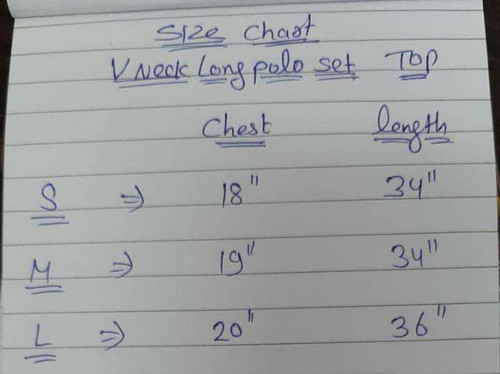 Size Chart
V Neck Long polo set TOP
Chest length
S ⇒ 18" 34"
M ⇒ 19" 34"
L ⇒ 20" 36"